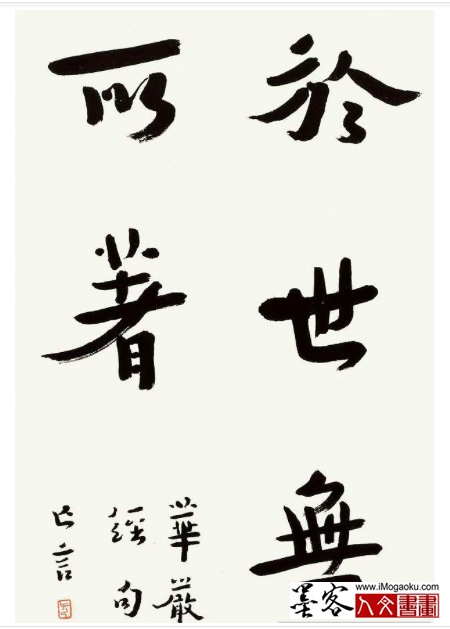 於世無
所著
華嚴
經句
亡言
墨客
www.iMogaoku.com
人文書畫